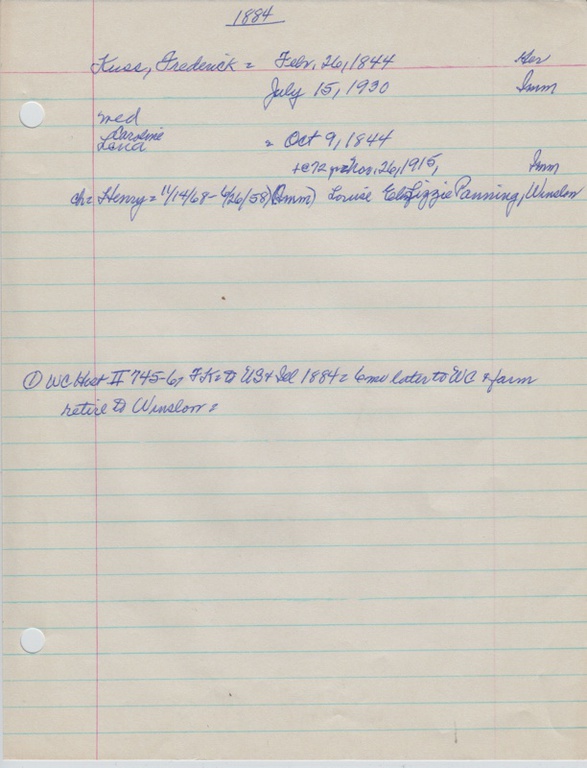 1884
Kuss, Frederick = Febr. 26, 1844 Ger
July 15, 1930 Imm
med
Caroline
Lend = Oct 9, 1844
72 Nov. 26, 1915, Imm
ch = Henry = 11/14/68 - 6/26/58 (Imm) Louise Lizzie Panning, Winslow
① WC Hist II 745-6, FK = to US & Ill 1884 = 6 mo later to WC & farm
retire to Winslow =